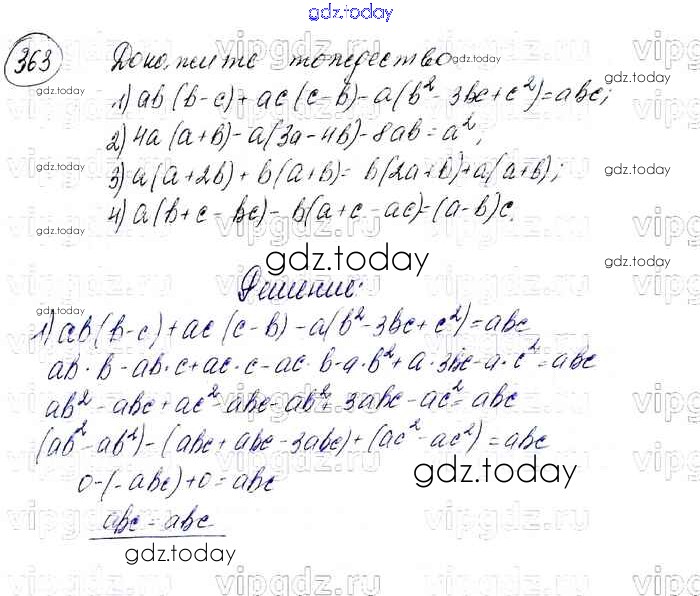 gdz.today
363 Докажите тождество
1) ab(b-c)+ac(c-b)-a(b²-3bc+c²)=abc;
2) 4a(a+b)-a(3a-4b)-8ab=a²;
3) a(a+2b)+b(a+b)=b(2a+b)+a(a+b);
4) a(b+c-bc)-b(a+c-ac)=(a-b)c.
gdz.today
Решение:
1) ab(b-c)+ac(c-b)-a(b²-3bc+c²)=abc
ab·b-ab·c+ac·c-ac·b-a·b²+a·3bc-a·c²=abc
ab²-abc+ac²-abc-ab²+3abc-ac²=abc
(ab²-ab²)-(abc+abc-3abc)+(ac²-ac²)=abc
0-(-abc)+0=abc
gdz.today
abc=abc
gdz.today
vipgdz.ru